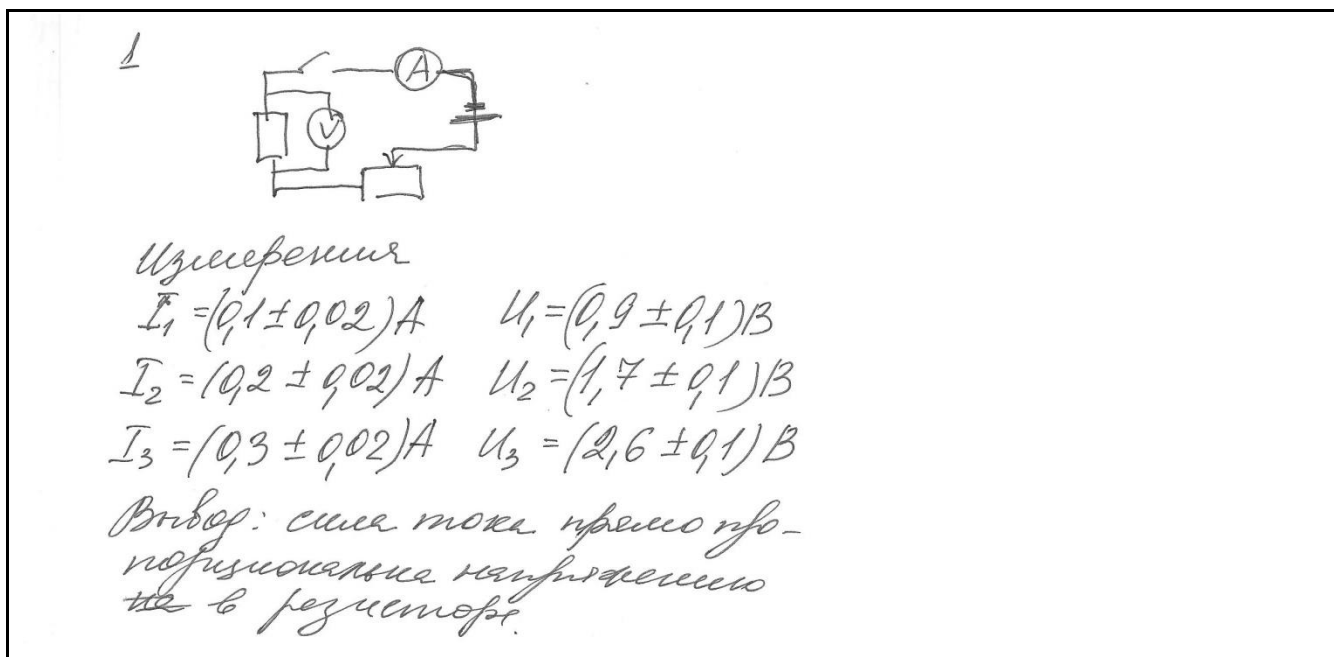 1
A
V
Измерения
I₁ = (0,1 ± 0,02) А U₁ = (0,9 ± 0,1) В
I₂ = (0,2 ± 0,02) А U₂ = (1,7 ± 0,1) В
I₃ = (0,3 ± 0,02) А U₃ = (2,6 ± 0,1) В
Вывод: сила тока прямо про-
порциональна напряжению
на в резисторе.